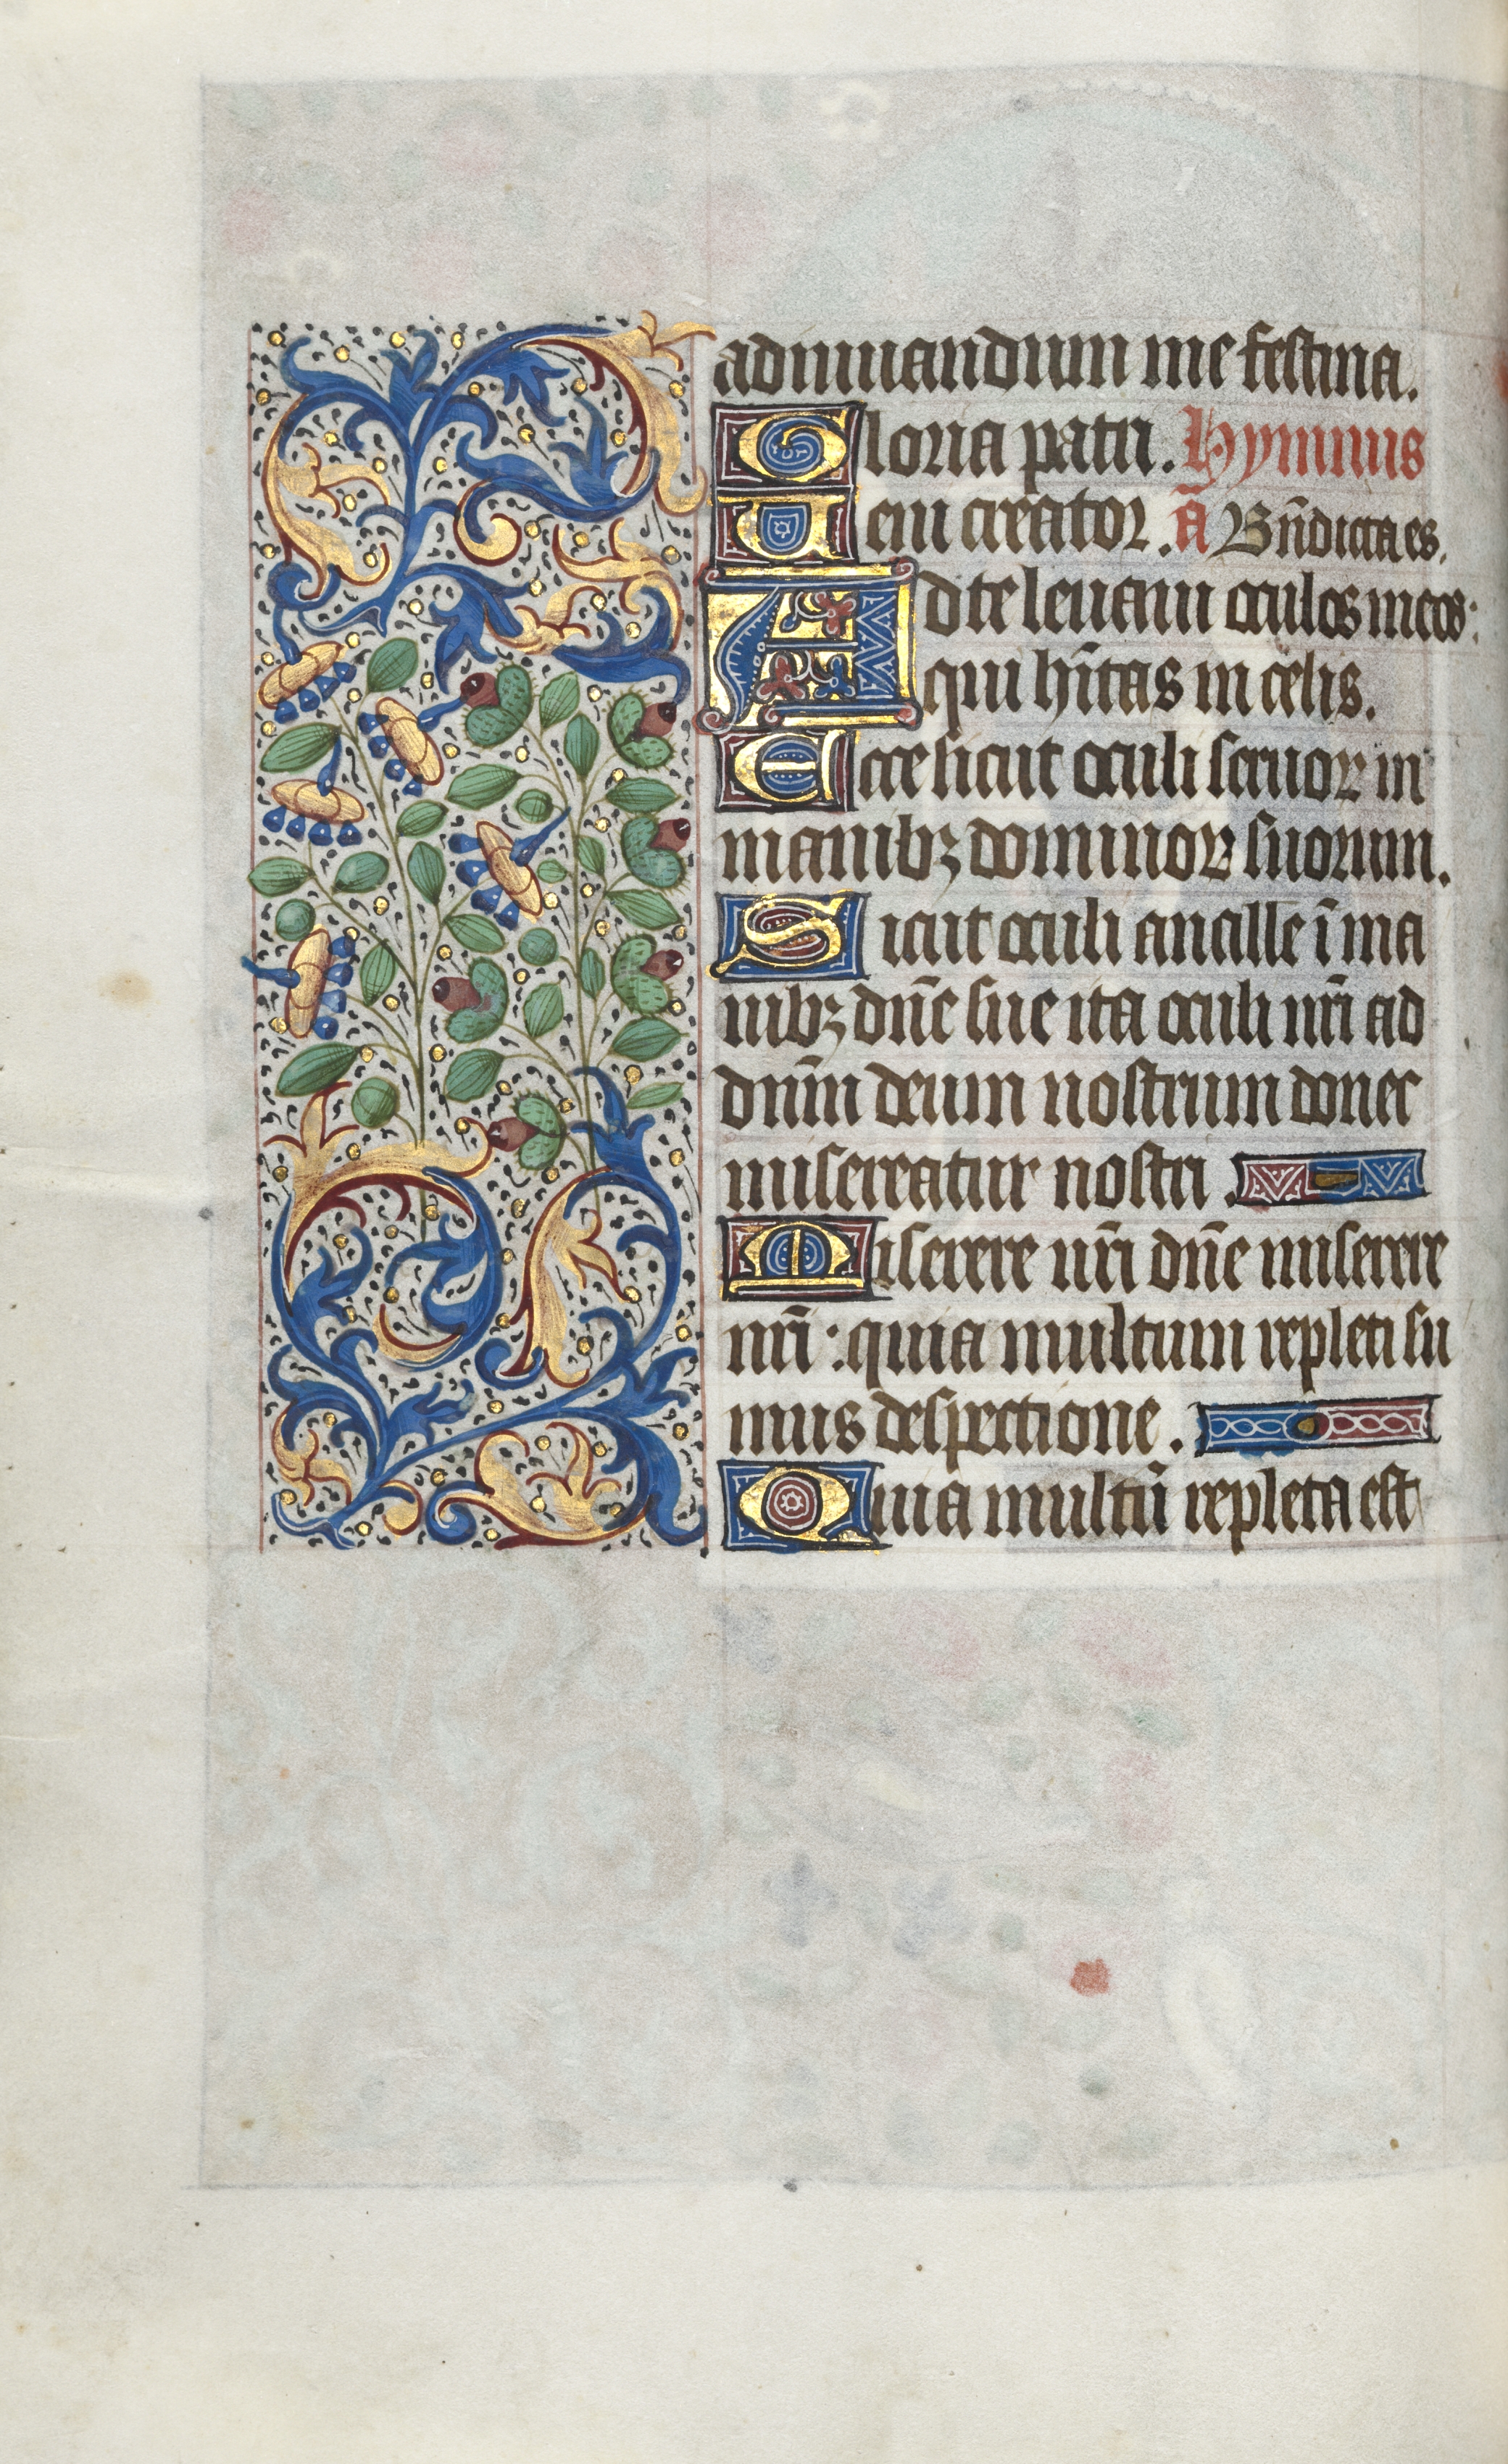 adiuuandum me festina.
Gloria patri. Hymnus
Ueni creator. a͞ Bn̄dicta es.
Ad te leuaui oculos meos:
qui hītas in celis.
Ecce sicut oculi seruoꝝ in
manibꝫ dominoꝝ suorum.
Sicut oculi ancille ī ma
nibꝫ dn̄e sue ita oculi nr̄i ad
dn̄m deum nostrum donec
misereatur nostri.
Miserere nr̄i dn̄e miserere
nr̄i: quia multum repleti su
mus despectione.
Quia multū repleta est